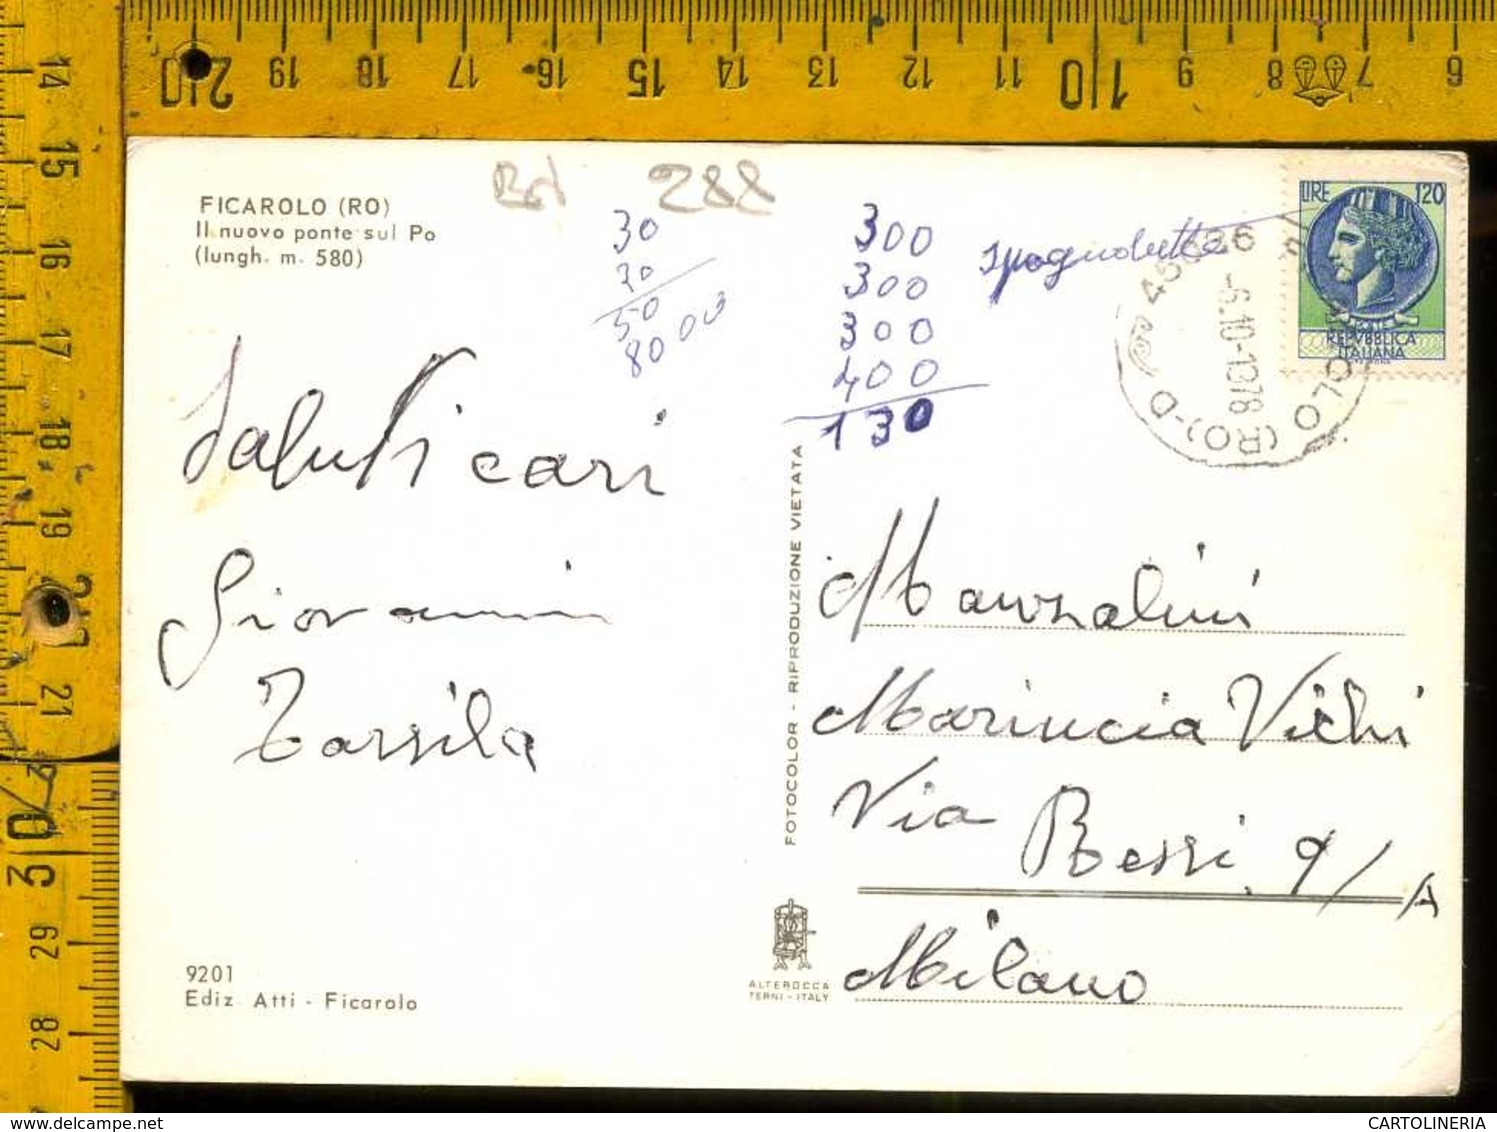 FICAROLO (RO)
Il nuovo ponte sul Po
(lungh. m. 580)
288
30
30
50
80 00
300
300
300
400
130
spagnolette
LIRE 120
REPVBBLICA
ITALIANA
45036
-6.10-1978
(RO)-D
Saluti cari
Giovanni
Tarsila
Manzalini
Marinicia Vichi
Via Bessi 9/A
Milano
FOTOCOLOR - RIPRODUZIONE VIETATA
ALTEROCCA
TERNI - ITALY
9201
Ediz. Atti - Ficarolo
20 19 18 17 16 15 14 13 12 11 10 9 8 7 6
14
15
16
17
18
19
20
21
30
29
28
delcampe.net
CARTOLINERIA